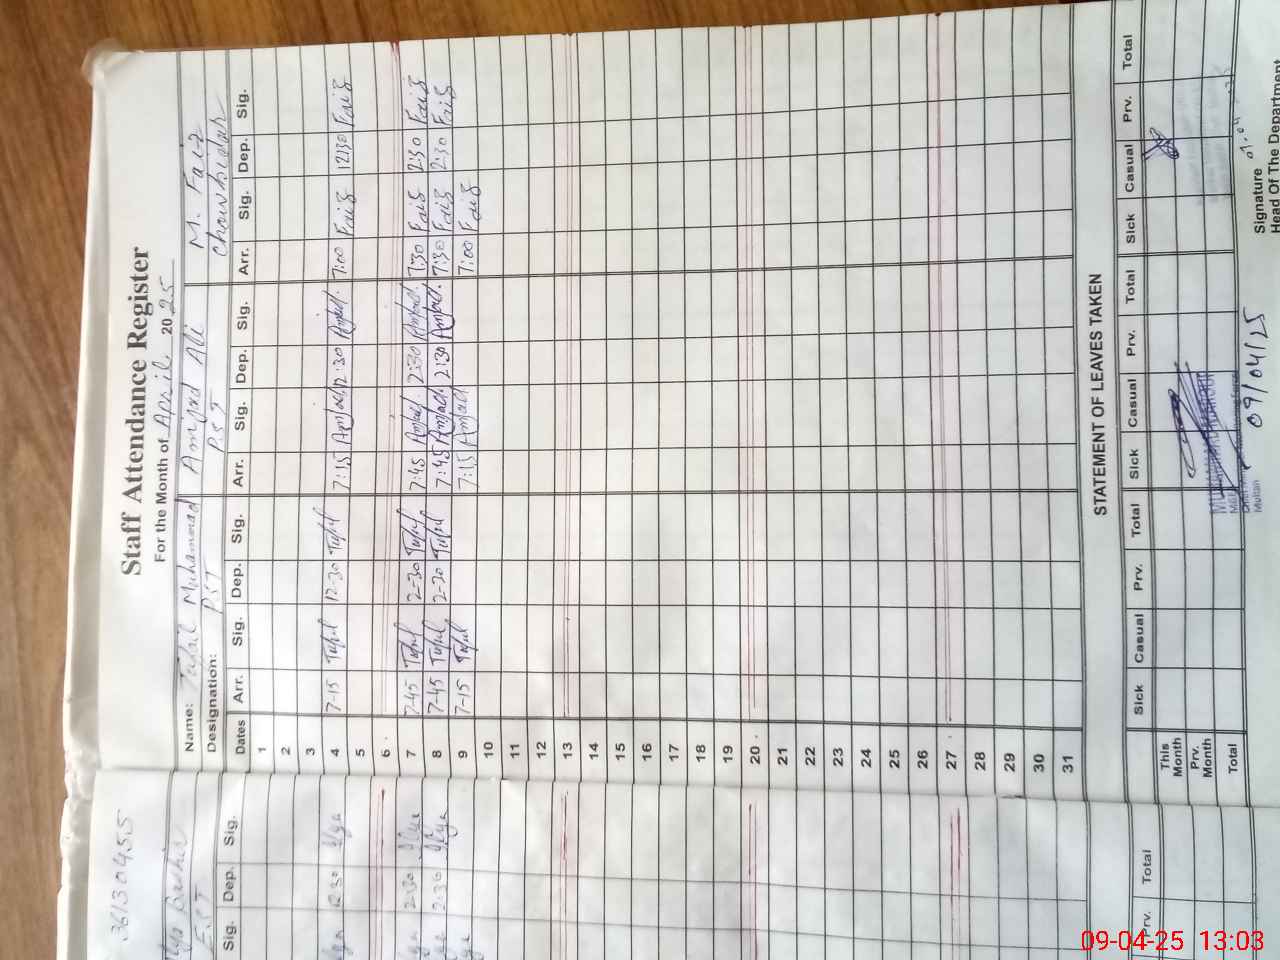 Staff Attendance Register
For the Month of April 2025
Name: Tufail Muhammad Amjad Ali M. Faiz
Designation: PST PST Chowkidar
Dates Arr. Sig. Dep. Sig. Arr. Sig. Dep. Sig. Arr. Sig. Dep. Sig.
1
2
3
4 7-15 Tufail 12-30 Tufail 7:15 Amjad 12:30 Amjad 7:00 Faiz 12:30 Faiz
5
6
7 7-45 Tufail 2-30 Tufail 7:45 Amjad 2:30 Amjad 7:30 Faiz 2:30 Faiz
8 7-45 Tufail 2-30 Tufail 7:45 Amjad 2:30 Amjad 7:30 Faiz 2:30 Faiz
9 7-15 Tufail 7:15 Amjad 7:00 Faiz
10
11
12
13
14
15
16
17
18
19
20
21
22
23
24
25
26
27
28
29
30
31
STATEMENT OF LEAVES TAKEN
Sick Casual Prv. Total Sick Casual Prv. Total Sick Casual Prv. Total
This Month
Prv. Month
Total
Multan
09/04/25
Signature
Head Of The Department
36130455
EST
Sig. Dep. Sig.
12:30
2:30
2:30
Prv. Total
09-04-25 13:03